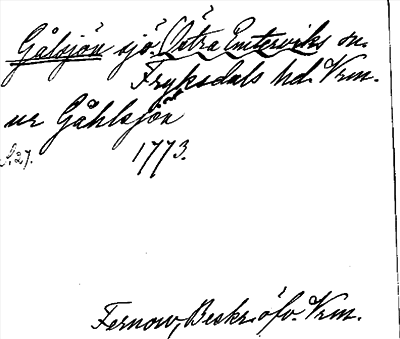 Gålsjön sjö. Östra Emterviks sn.
Fryksdals hd. Vrm.
ur Gåhlsjön
S. 27. 1773.
Fernow, Beskr. öfv. Vrm.